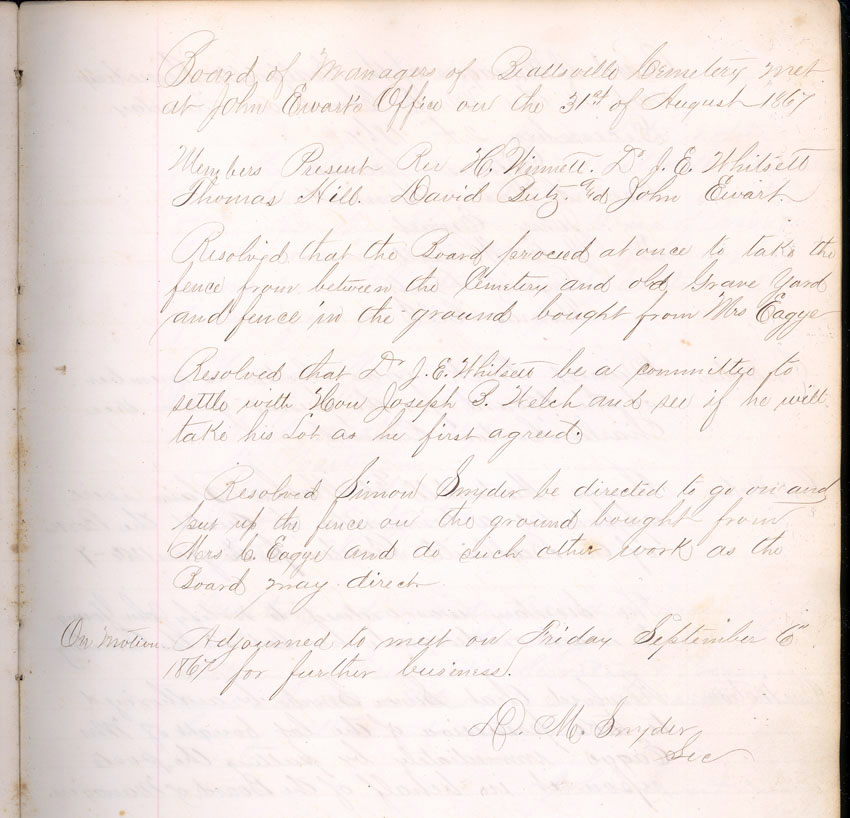 Board of Managers of Beallsville Cemetery met
at John Ewart's Office on the 31st of August 1867
Members Present Rev H. Winnett. Dr J. E. Whitsett
Thomas Hill. David Butz. & John Ewart.
Resolved that the Board proceed at once to take the
fence from between the Cemetery and old Grave Yard
and fence in the ground bought from Mrs Eagye
Resolved that Dr J. E. Whitsett be a committee to
settle with Hon Joseph B. Welch and see if he will
take his Lot as he first agreed.
Resolved Simon Snyder be directed to go on and
put up the fence on the ground bought from
Mrs C. Eagye and do such other work as the
Board may direct
On Motion Adjourned to meet on Friday September 6th
1867 for further business.
D. M. Snyder
Sec